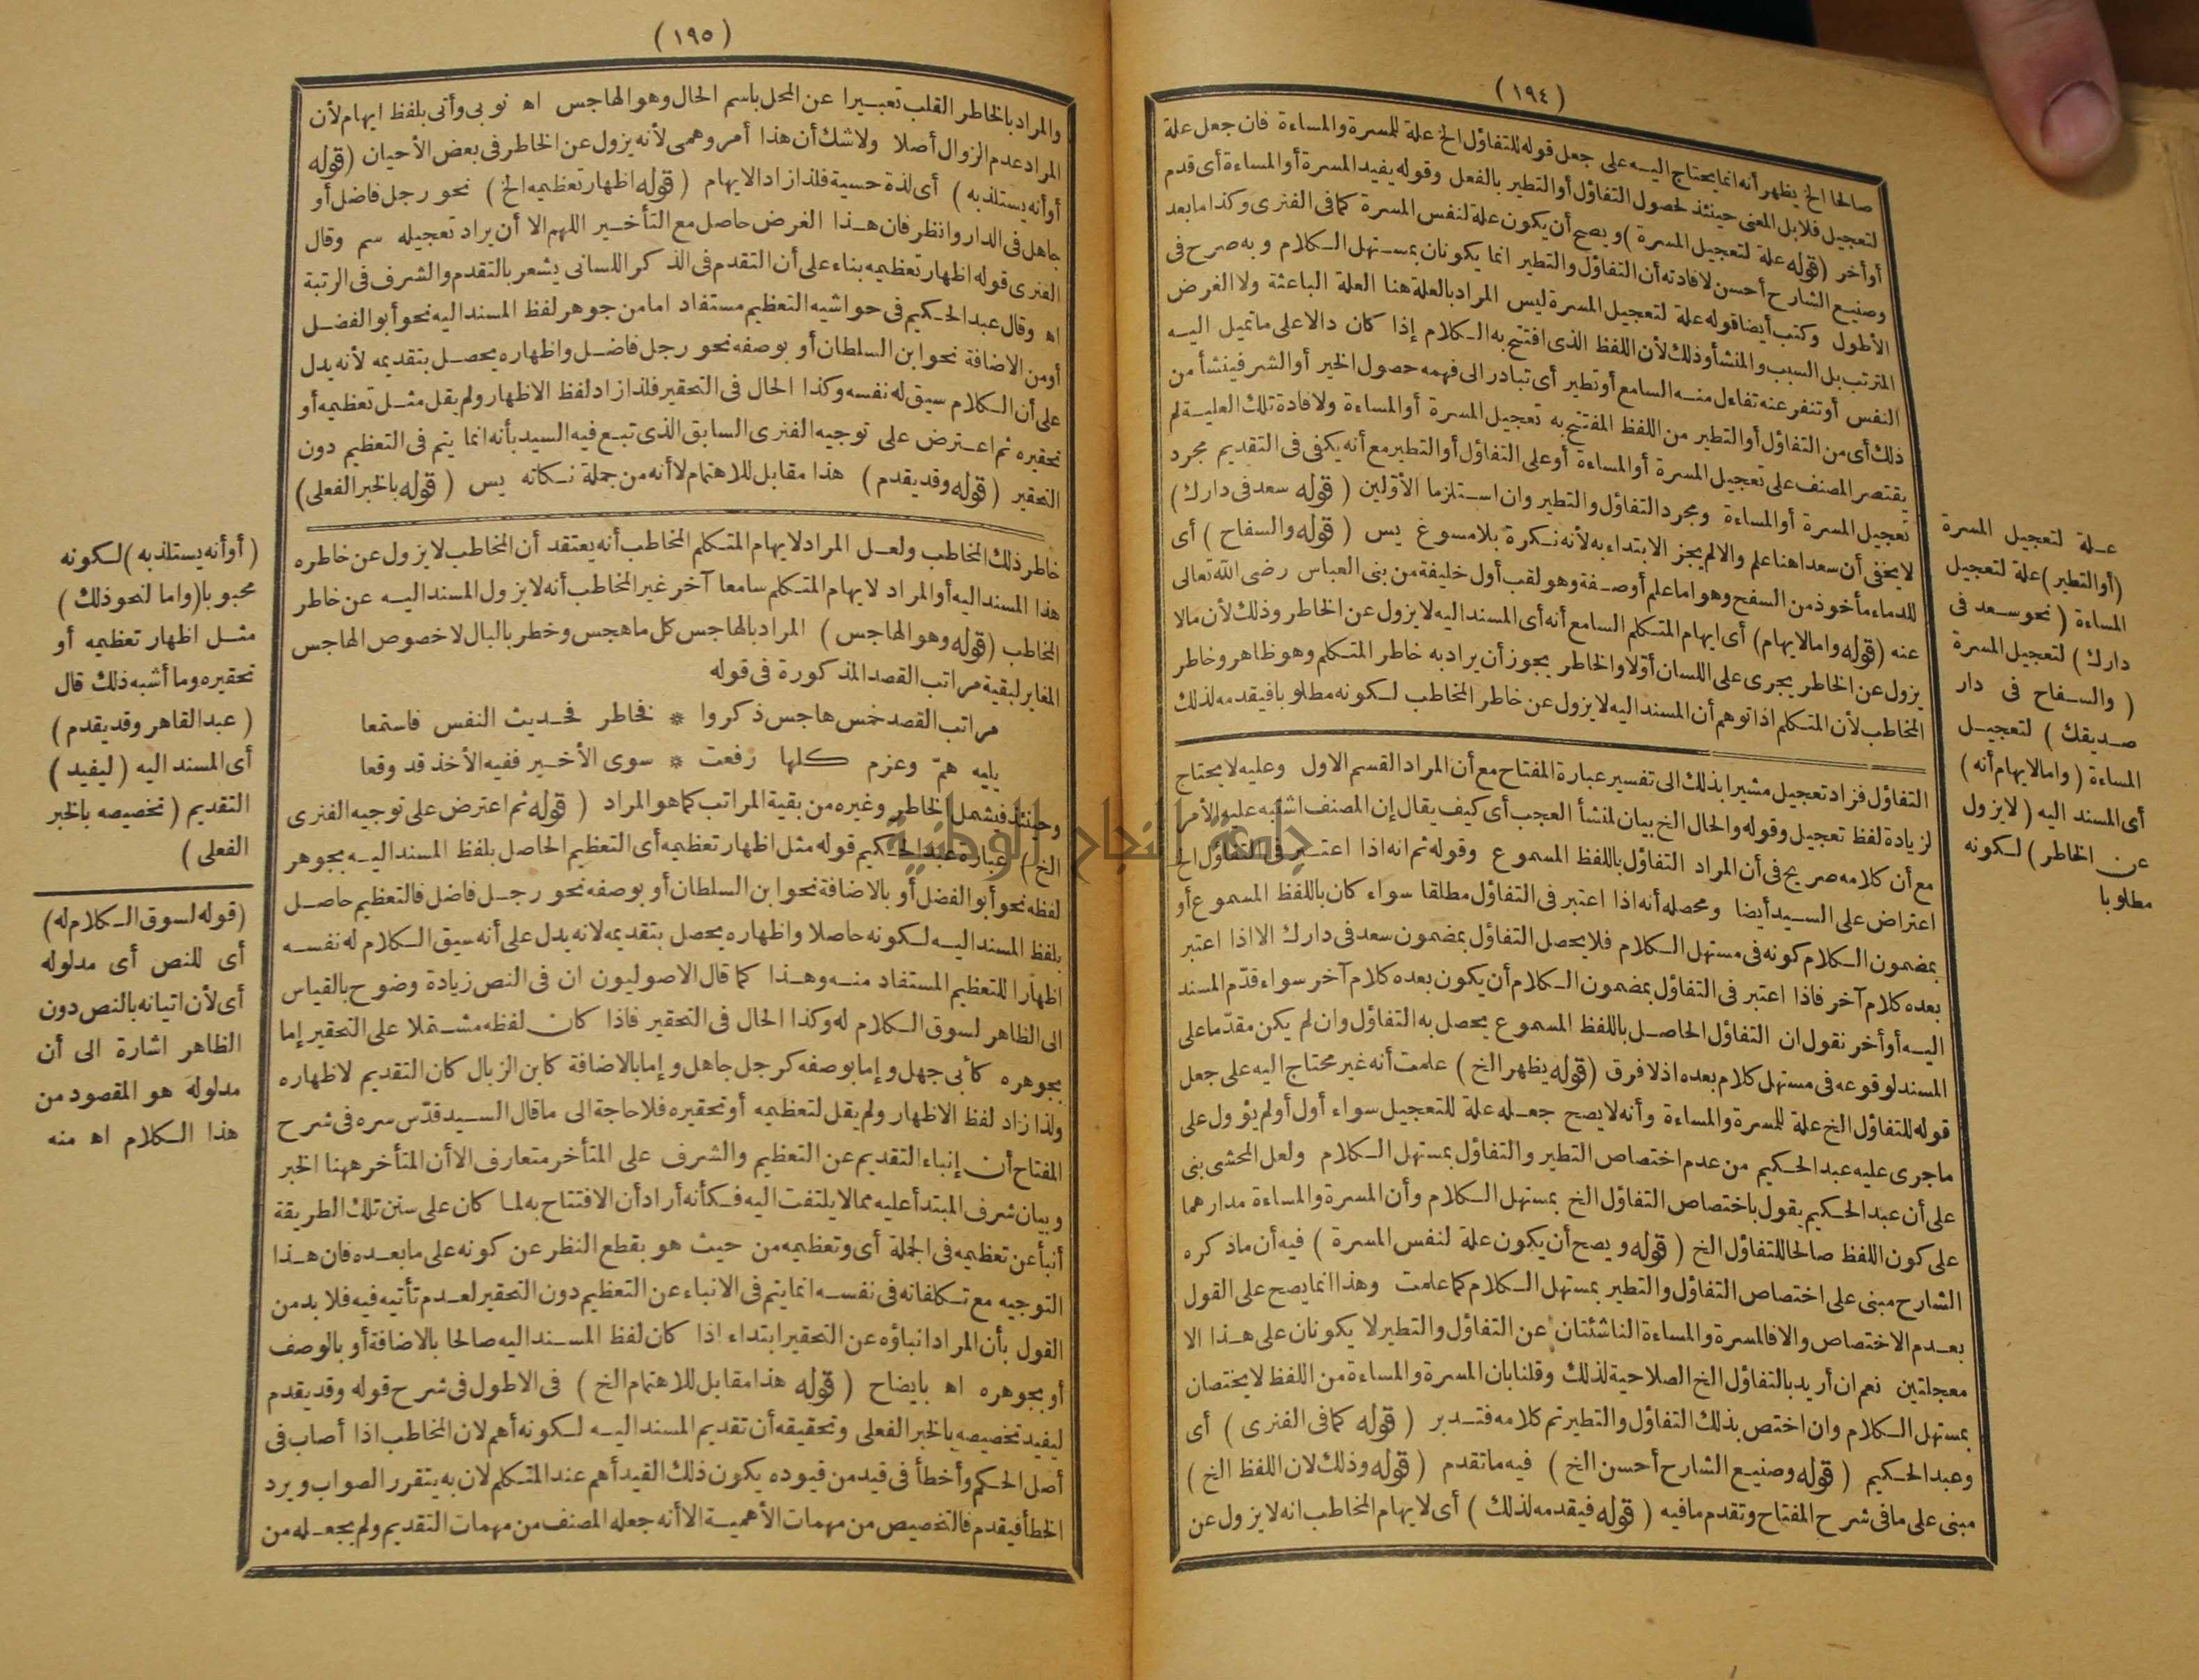 (١٩٤)
صالحا الخ يظهر أنه انما يحتاج اليه على جعل قوله للتفاؤل الخ علة للمسرة والمساءة فان جعل علة
لتعجيل فلا بل المعنى حينئذ لحصول التفاؤل أو التطير بالفعل وقوله يفيد المسرة أو المساءة أى قدم
أو أخر (قوله علة لتعجيل المسرة) ويصح أن يكون علة لنفس المسرة كما فى الفنرى وكذا ما بعد
وصنيع الشارح أحسن لافادته أن التفاؤل والتطير انما يكونان بمستهل الكلام وبه صرح فى
الأطول وكتب أيضا قوله علة لتعجيل المسرة ليس المراد بالعلة هنا العلة الباعثة ولا الغرض
المترتب بل السبب والمنشأ وذلك لأن اللفظ الذى افتتح به الكلام إذا كان دالا على ما تميل اليه
النفس أو تنفر عنه تفاءل منه السامع أو تطير أى تبادر الى فهمه حصول الخير أو الشر فينشأ من
ذلك أى من التفاؤل أو التطير من اللفظ المفتتح به تعجيل المسرة أو المساءة ولافادة تلك العلية لم
يقتصر المصنف على تعجيل المسرة أو المساءة أو على التفاؤل أو التطير مع أنه يكفى فى التقديم مجرد
تعجيل المسرة أو المساءة ومجرد التفاؤل والتطير وان استلزما الأولين (قوله سعد فى دارك)
لا يخفى أن سعدا هنا علم والا لم يجز الابتداء به لأنه نكرة بلا مسوغ يس (قوله والسفاح) أى
للدماء مأخوذ من السفح وهو اما علم أو صفة وهو لقب أول خليفة من بنى العباس رضى الله تعالى
عنه (قوله واما لايهام) أى ايهام المتكلم السامع أنه أى المسند اليه لا يزول عن الخاطر وذلك لأن ما لا
يزول عن الخاطر يجرى على اللسان أولا والخاطر يجوز أن يراد به خاطر المتكلم وهو ظاهر وخاطر
المخاطب لأن المتكلم اذا توهم أن المسند اليه لا يزول عن خاطر المخاطب لكونه مطلوبا فيقدمه لذلك
علة لتعجيل المسرة
(أو التطير) علة لتعجيل
المساءة (نحو سعد فى
دارك) لتعجيل المسرة
(والسفاح فى دار
صديقك) لتعجيل
المساءة (واما لايهام أنه)
أى المسند اليه (لا يزول
عن الخاطر) لكونه
مطلوبا
التفاؤل فزاد تعجيل مشيرا بذلك الى تفسير عبارة المفتاح مع أن المراد القسم الاول وعليه لا يحتاج
لزيادة لفظ تعجيل وقوله والحال الخ بيان لمنشأ العجب أى كيف يقال إن المصنف اشتبه عليه الأمر
مع أن كلامه صريح فى أن المراد التفاؤل باللفظ المسموع وقوله ثم انه اذا اعتبر فى التفاؤل الخ
اعتراض على السيد أيضا ومحصله أنه اذا اعتبر فى التفاؤل مطلقا سواء كان باللفظ المسموع أو
بمضمون الكلام كونه فى مستهل الكلام فلا يحصل التفاؤل بمضمون سعد فى دارك الا اذا اعتبر
بعده كلام آخر فاذا اعتبر فى التفاؤل بمضمون الكلام أن يكون بعده كلام آخر سواء قدّم المسند
اليه أو أخر نقول ان التفاؤل الحاصل باللفظ المسموع يحصل به التفاؤل وان لم يكن مقدّما على
المسند لوقوعه فى مستهل كلام بعده اذ لا فرق (قوله يظهر الخ) علمت أنه غير محتاج اليه على جعل
قوله للتفاؤل الخ علة للمسرة والمساءة وأنه لا يصح جعله علة للتعجيل سواء أول أو لم يؤول على
ما جرى عليه عبد الحكيم من عدم اختصاص التطير والتفاؤل بمستهل الكلام ولعل المحشى بنى
على أن عبد الحكيم يقول باختصاص التفاؤل الخ بمستهل الكلام وأن المسرة والمساءة مدارهما
على كون اللفظ صالحا للتفاؤل الخ (قوله ويصح أن يكون علة لنفس المسرة) فيه أن ما ذكره
الشارح مبنى على اختصاص التفاؤل والتطير بمستهل الكلام كما علمت وهذا انما يصح على القول
بعدم الاختصاص والا فالمسرة والمساءة الناشئتان عن التفاؤل والتطير لا يكونان على هذا الا
معجلتين نعم ان أريد بالتفاؤل الخ الصلاحية لذلك وقلنا بان المسرة والمساءة من اللفظ لا يختصان
بمستهل الكلام وان اختص بذلك التفاؤل والتطير تم كلامه فتدبر (قوله كما فى الفنرى) أى
وعبد الحكيم (قوله وصنيع الشارح أحسن الخ) فيه ما تقدم (قوله وذلك لان اللفظ الخ)
مبنى على ما فى شرح المفتاح وتقدم ما فيه (قوله فيقدمه لذلك) أى لايهام المخاطب انه لا يزول عن
(١٩٥)
والمراد بالخاطر القلب تعبيرا عن المحل باسم الحال وهو الهاجس اه نوبى وأتى بلفظ ايهام لأن
المراد عدم الزوال أصلا ولا شك أن هذا أمر وهمى لأنه يزول عن الخاطر فى بعض الأحيان (قوله
أو أنه يستلذ به) أى لذة حسية فلذا زاد الايهام (قوله اظهار تعظيمه الخ) نحو رجل فاضل أو
جاهل فى الدار وانظر فان هذا الغرض حاصل مع التأخير اللهم الا أن يراد تعجيله سم وقال
الفنرى قوله اظهار تعظيمه بناء على أن التقدم فى الذكر اللسانى يشعر بالتقدم والشرف فى الرتبة
اه وقال عبد الحكيم فى حواشيه التعظيم مستفاد اما من جوهر لفظ المسند اليه نحو أبو الفضل
أو من الاضافة نحو ابن السلطان أو بوصفه نحو رجل فاضل واظهاره يحصل بتقديمه لأنه يدل
على أن الكلام سيق له نفسه وكذا الحال فى التحقير فلذا زاد لفظ الاظهار ولم يقل مثل تعظيمه أو
تحقيره ثم اعترض على توجيه الفنرى السابق الذى تبع فيه السيد بأنه انما يتم فى التعظيم دون
التحقير (قوله وقد يقدم) هذا مقابل للاهتمام لا أنه من جملة نكاته يس (قوله بالخبر الفعلى)
خاطر ذلك المخاطب ولعل المراد لايهام المتكلم المخاطب أنه يعتقد أن المخاطب لا يزول عن خاطره
هذا المسند اليه أو المراد لايهام المتكلم سامعا آخر غير المخاطب أنه لا يزول المسند اليه عن خاطر
المخاطب (قوله وهو الهاجس) المراد بالهاجس كل ما هجس وخطر بالبال لا خصوص الهاجس
المغاير لبقية مراتب القصد المذكورة فى قوله
مراتب القصد خمس هاجس ذكروا * فخاطر فحديث النفس فاستمعا
يليه همّ وعزم كلها رفعت * سوى الأخير ففيه الأخذ قد وقعا
وحينئذ فيشمل الخاطر وغيره من بقية المراتب كما هو المراد (قوله ثم اعترض على توجيه الفنرى
الخ) عبارة عبد الحكيم قوله مثل اظهار تعظيمه أى التعظيم الحاصل بلفظ المسند اليه بجوهر
لفظه نحو أبو الفضل أو بالاضافة نحو ابن السلطان أو بوصفه نحو رجل فاضل فالتعظيم حاصل
بلفظ المسند اليه لكونه حاصلا واظهاره يحصل بتقديمه لانه يدل على أنه سيق الكلام له نفسه
اظهارا للتعظيم المستفاد منه وهذا كما قال الاصوليون ان فى النص زيادة وضوح بالقياس
الى الظاهر لسوق الكلام له وكذا الحال فى التحقير فاذا كان لفظه مشتملا على التحقير إما
بجوهره كأبى جهل وإما بوصفه كرجل جاهل وإما بالاضافة كابن الزبال كان التقديم لاظهاره
ولذا زاد لفظ الاظهار ولم يقل لتعظيمه أو تحقيره فلا حاجة الى ما قال السيد قدّس سره فى شرح
المفتاح أن إنباء التقديم عن التعظيم والشرف على المتأخر متعارف الا أن المتأخر ههنا الخبر
وبيان شرف المبتدأ عليه مما لا يلتفت اليه فكأنه أراد أن الافتتاح به لما كان على سنن تلك الطريقة
أنبأ عن تعظيمه فى الجملة أى وتعظيمه من حيث هو بقطع النظر عن كونه على ما بعده فان هذا
التوجيه مع تكلفاته فى نفسه انما يتم فى الانباء عن التعظيم دون التحقير لعدم تأتيه فيه فلا بد من
القول بأن المراد انباؤه عن التحقير ابتداء اذا كان لفظ المسند اليه صالحا بالاضافة أو بالوصف
أو بجوهره اه بايضاح (قوله هذا مقابل للاهتمام الخ) فى الاطول فى شرح قوله وقد يقدم
ليفيد تخصيصه بالخبر الفعلى وتحقيقه أن تقديم المسند اليه لكونه أهم لان المخاطب اذا أصاب فى
أصل الحكم وأخطأ فى قيد من قيوده يكون ذلك القيد أهم عند المتكلم لان به يتقرر الصواب ويرد
الخطأ فيقدم فالتخصيص من مهمات الأهمية الا أنه جعله المصنف من مهمات التقديم ولم يجعله من
(أو أنه يستلذ به) لكونه
محبوبا (واما لنحو ذلك)
مثل اظهار تعظيمه أو
تحقيره وما أشبه ذلك قال
(عبد القاهر وقد يقدم)
أى المسند اليه (ليفيد)
التقديم (تخصيصه بالخبر
الفعلى)
(قوله لسوق الكلام له)
أى للنص أى مدلوله
أى لأن اتيانه بالنص دون
الظاهر اشارة الى أن
مدلوله هو المقصود من
هذا الكلام اه منه
جامعة النجاح الوطنية